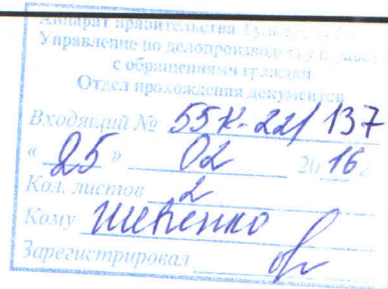 Аппарат правительства Тульской
Управление по делопроизводству и работе
с обращениями граждан
Отдел прохождения документов
Входящий № 55К-22/137
« 25 » 02 2016г.
Кол. листов 2
Кому
Зарегистрировал